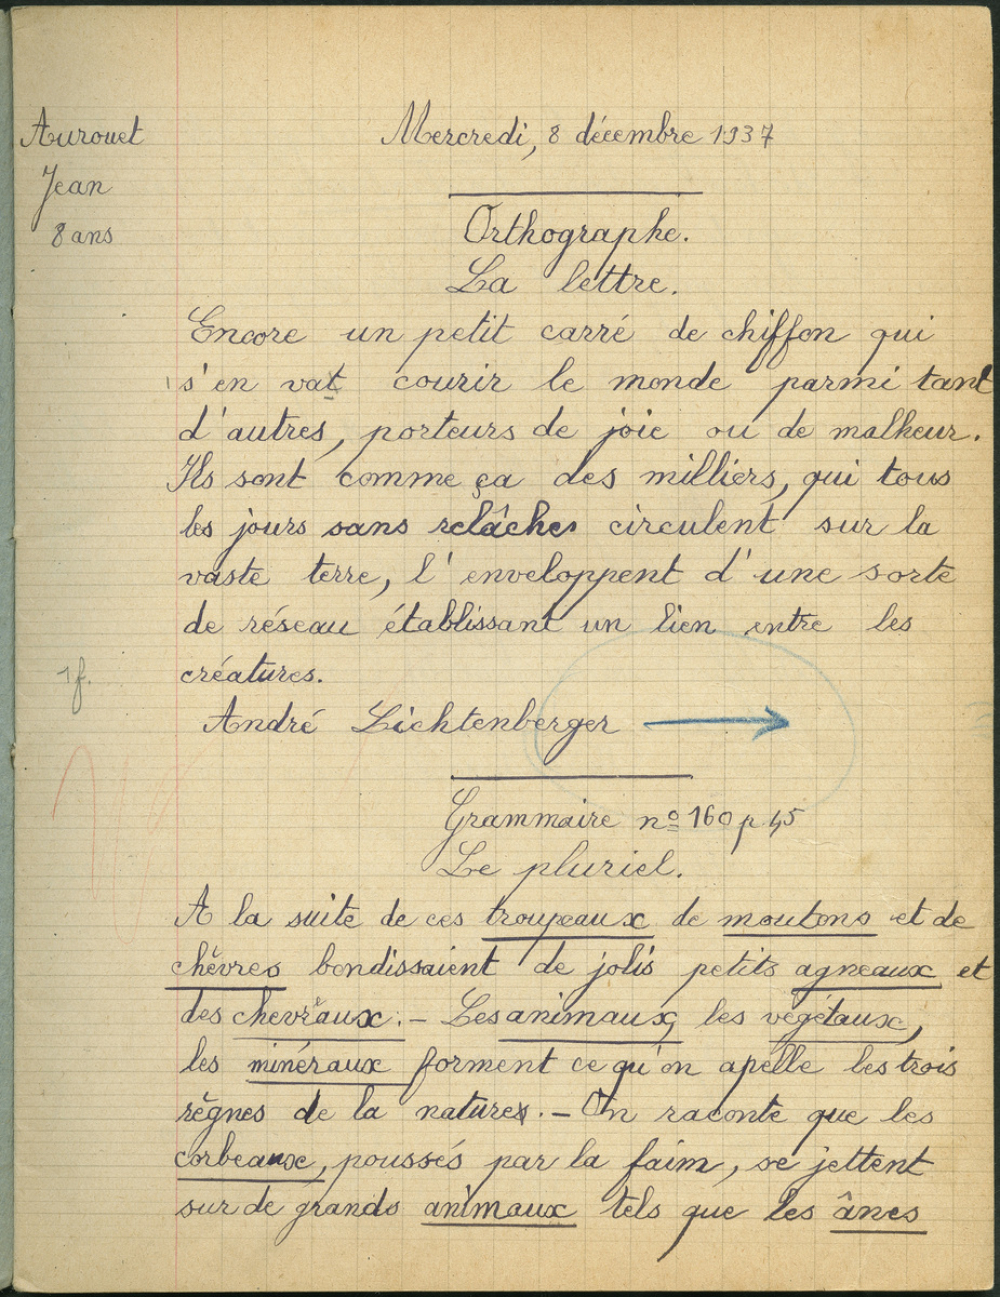 Aurouet
Jean
8 ans
Mercredi, 8 décembre 1937
Orthographe.
La lettre.
Encore un petit carré de chiffon qui
s'en vat courir le monde parmi tant
d'autres, porteurs de joie ou de malheur.
Ils sont comme ça des milliers, qui tous
les jours sans relâches circulent sur la
vaste terre, l'enveloppent d'une sorte
de réseau établissant un lien entre les
créatures.
1f.
André Lichtenberger
Grammaire nº 160 p 45
Le pluriel.
A la suite de ces troupeaux de moutons et de
chèvres bondissaient de jolis petits agneaux et
des chevreaux. - Les animaux, les végétaux,
les minéraux forment ce qu'on apelle les trois
règnes de la nature. - On raconte que les
corbeaux, poussés par la faim, se jettent
sur de grands animaux tels que les ânes